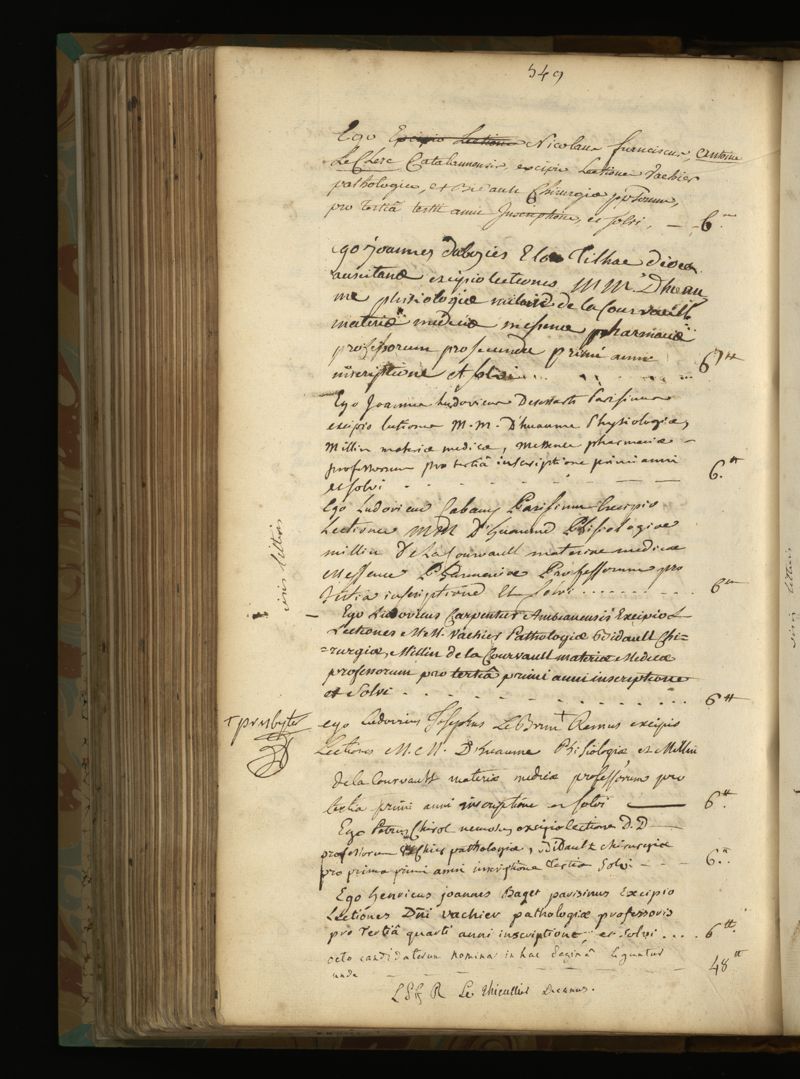 549
Ego Excipio Lectiones Nicolaus franciscus, Antonius
Le Clerc Catalaunensis, excipio Lectiones Vachier
pathologiæ, et Bidault Chirurgiæ professorum,
pro tertiâ anni Inscriptione, et solvi, — 6.
Ego joannes
auscitanæ excipio lectiones MM. Dheau
me physiologiæ millin de la Courvault
materiæ medicæ messence pharmaciæ
professorum pro secunda primi anni
inscriptione et solvi... 6 tt
Ego Joannes Ludovicus Parisinus
excipio lectiones M.M. D'heaume Physiologiæ,
Millin materiæ medicæ, messence pharmaciæ -
professorum pro tertiâ inscriptione primi anni
et solvi - - - 6. tt
Ego Ludovicus Cabany Parisinus Excipio
Lectiones MM D'heaume Phisiologiae
millin De La Courvault materiae medicae
Messence Pharmaciae Professorum pro
tertia inscriptione Et Solvi .......... 6 tt
viris litteris
— Ego Ludovicus Carpentier Ambianensis Excipio
Lectiones M.M. Vachier Pathologiæ Bidault Chi=
=rurgiæ, Millin de la Courvault materiæ Medicæ
professorum pro tertiâ primi anni inscriptione
et Solvi . . . . . . . . 6 tt
+ presbyter
ego Ludovicus Josephus Le Brun + Remus excipio
Lectiones M. M. D'heaume Phisiologiæ et Millin
de la Courvault materiæ medicæ professorum pro
tertia primi anni inscriptione et solvi — 6. tt
Ego Petrus Chirol excipio lectiones D.D
professorum Vachier pathologiæ, Bidault chirurgiæ
pro prima primi anni inscriptione tertia Solvi - - - 6. tt
Ego henricus joannes Baget parisinus Excipio
Lectiones Dni vachier pathologiæ professoris
pro Tertiâ quarti anni inscriptione et solvi .... 6 tt.
octo candidatorum nomina in hac paginâ leguntur
unde — — — 48 tt
Le Thieullier Decanus.